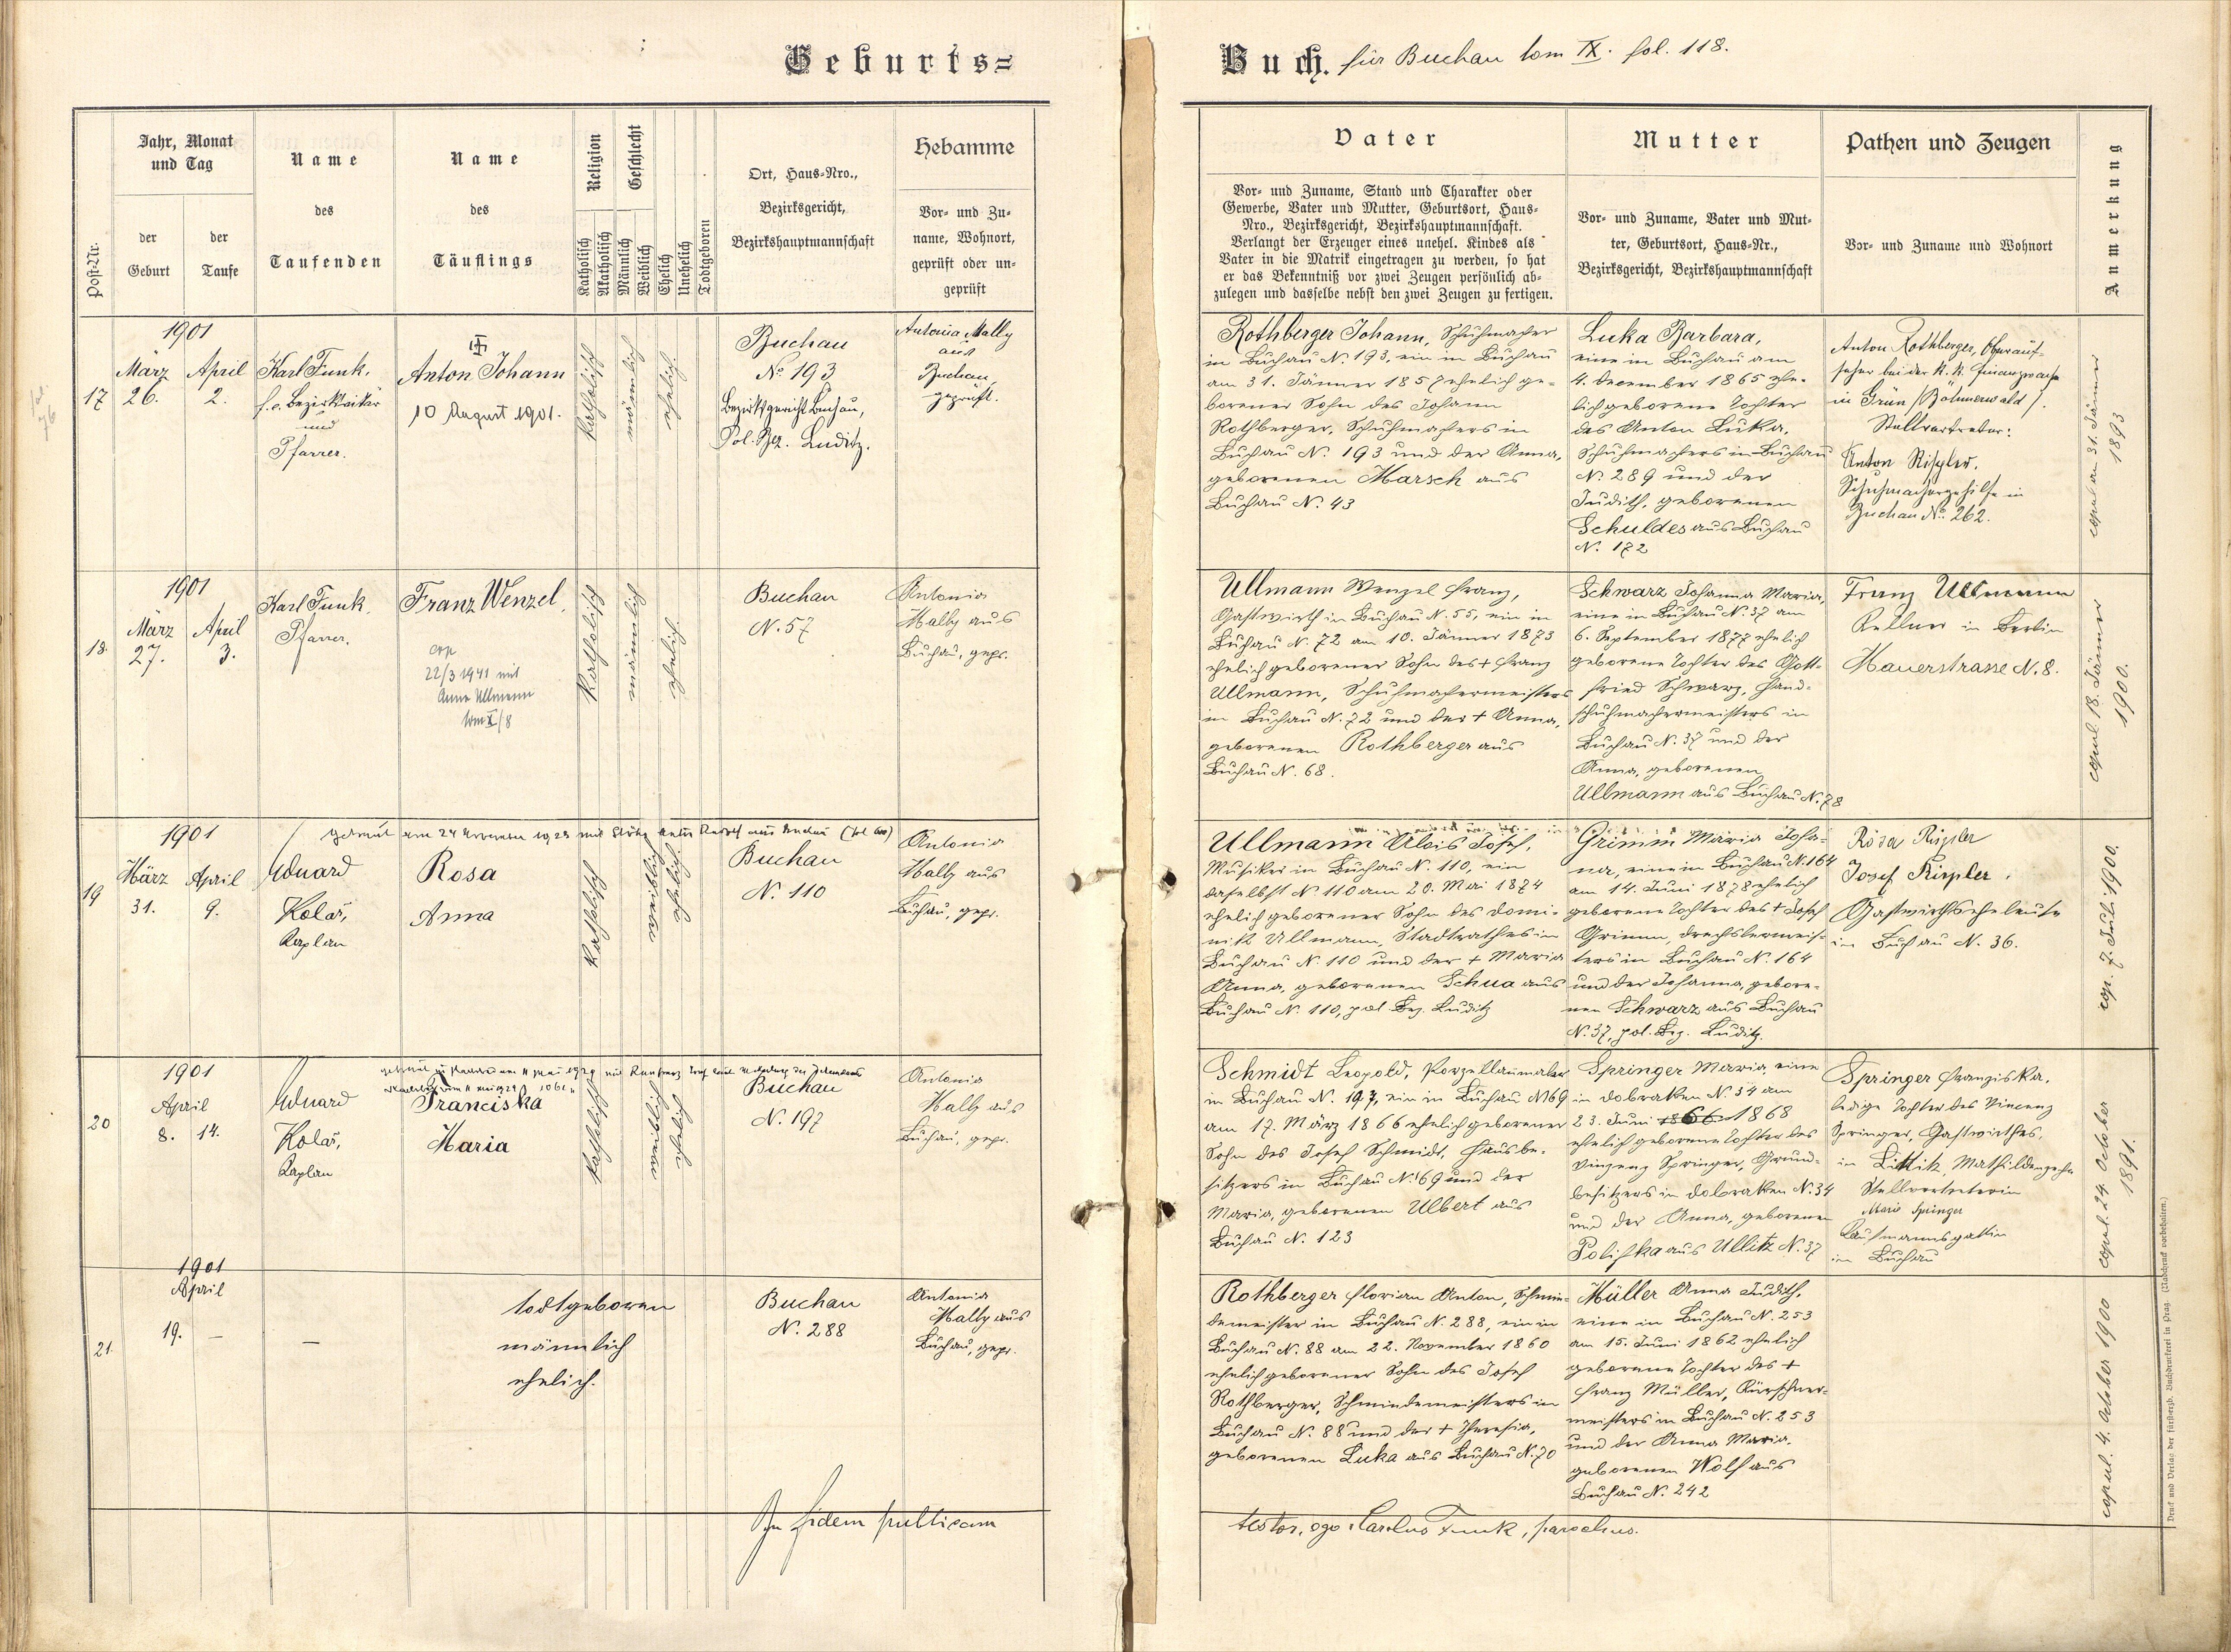 Geburts=
Buch. für Buchau tom IX. fol. 118.
Post-Nr.
Jahr, Monat
und Tag
der
Geburt
der
Taufe
Name
des
Taufenden
Name
des
Täuflings
Religion
Katholisch
Akatholisch
Geschlecht
Männlich
Weiblich
Ehelich
Unehelich
Todtgeboren
Ort, Haus-Nro.,
Bezirksgericht,
Bezirkshauptmannschaft
Hebamme
Vor- und Zu-
name, Wohnort,
geprüft oder un-
geprüft
Vater
Vor- und Zuname, Stand und Charakter oder
Gewerbe, Vater und Mutter, Geburtsort, Haus-
Nro., Bezirksgericht, Bezirkshauptmannschaft.
Verlangt der Erzeuger eines unehel. Kindes als
Vater in die Matrik eingetragen zu werden, so hat
er das Bekenntniß vor zwei Zeugen persönlich ab-
zulegen und dasselbe nebst den zwei Zeugen zu fertigen.
Mutter
Vor- und Zuname, Vater und Mut-
ter, Geburtsort, Haus-Nr.,
Bezirksgericht, Bezirkshauptmannschaft
Pathen und Zeugen
Vor- und Zuname und Wohnort
Anmerkung
17
1901
März
26.
April
2.
Karl Funk,
f.e. Bezirksvikär
und
Pfarrer.
Anton Johann
10 August 1901.
katholisch
männlich
ehelich.
Buchau
No. 193
Bezirksgericht Buchau,
Pol. Bez. Luditz.
Antonia Mally
aus
Buchau,
geprüft.
Rothberger Johann, Schuhmacher
in Buchau N. 193, ein in Buchau
am 31. Jänner 1857 ehelich ge-
borener Sohn des Johann
Rothberger, Schuhmachers in
Buchau N. 193 und der Anna,
geborenen Marsch aus
Buchau N. 43
Luka Barbara,
eine in Buchau am
4. December 1865 ehe-
lich geborene Tochter
des Anton Luka,
Schuhmachers in Buchau
N. 289 und der
Judith, geborenen
Schuldes aus Buchau
N. 172
Anton Rothberger, Oberauf-
seher bei der k. k. Finanzwache
in Grün /Böhmerwald/.
Stellvertreter:
Anton Rißler,
Schuhmachergehilfe in
Buchau No. 262.
copul. am 31. Jänner
1893
18.
1901
März
27.
April
3.
Karl Funk,
Pfarrer.
Franz Wenzel.
cop
22/3 1941 mit
Anna Ullmann
tom X/8
katholisch
männlich
ehelich.
Buchau
N. 57
Antonia
Mally aus
Buchau, gepr.
Ullmann Wenzel Franz,
Gastwirth in Buchau N. 55, ein in
Buchau N. 72 am 10. Jänner 1873
ehelich geborener Sohn des + Franz
Ullmann, Schuhmachermeisters
in Buchau N. 72 und der + Anna,
geborenen Rothberger aus
Buchau N. 68.
Schwarz Johanna Maria,
eine in Buchau N. 37 am
6. September 1877 ehelich
geborene Tochter des Gott-
fried Schwarz, Hand-
schuhmachermeisters in
Buchau N. 37 und der
Anna, geborenen
Ullmann aus Buchau N. 78
Franz Ullmann
Kellner in Berlin
Mauerstrasse N. 8.
copul. 18. Jänner
1900.
getraut am 24 November 1923 mit
19
1901
März
31.
April
9.
Eduard
Kolář,
Kaplan
Rosa
Anna
katholisch
weiblich
ehelich.
Buchau
N. 110
Antonia
Mally aus
Buchau, gepr.
Ullmann Alois Josef,
Musiker in Buchau N. 110, ein
daselbst N. 110 am 20. Mai 1874
ehelich geborener Sohn des Domi-
nik Ullmann, Stadtrathes in
Buchau N. 110 und der + Maria
Anna, geborenen Schua aus
Buchau N. 110, pol. Bez. Luditz
Grimm Maria Joha-
na, eine in Buchau N. 164
am 14. Juni 1878 ehelich
geborene Tochter des + Josef
Grimm, Drechslermeis-
ters in Buchau N. 164
und der Johanna, gebore-
nen Schwarz aus Buchau
N. 37, pol. Bez. Luditz.
Rosa Rippler
Josef Rippler,
Gastwirthseheleute
in Buchau N. 36.
cop. 7. Juli 1900.
20
1901
April
8. 14.
Eduard
Kolář,
Kaplan
Franciska
Maria
katholisch
weiblich
ehelich
Buchau
N. 197
Antonia
Mally aus
Buchau, gepr.
Schmidt Leopold, Porzellanmaler
in Buchau N. 197, ein in Buchau N 169
am 17. März 1866 ehelich geborener
Sohn des Josef Schmidt, Hausbe-
sitzers in Buchau N. 169 und der
Maria, geborenen Ulbert aus
Buchau N. 123
Springer Maria eine
in Dobraken N. 34 am
23. Juni 1866 1868
ehelich geborene Tochter des
Vinzenz Springer, Grund-
besitzers in Dobraken N. 34
und der Anna, geborenen
Polischka aus Ullitz N. 37
Springer Franziska,
ledige Tochter des Vincenz
Springer, Gastwirthes,
in Littitz, Mathildenzeche
Stellvertreterin
Marie Springer
Kaufmannsgattin
in Buchau
copul. 24. October
1891.
21.
1901
April
19. —
—
todtgeboren
männlich
ehelich.
Buchau
N. 288
Antonia
Mally aus
Buchau, gepr.
Rothberger Florian Anton, Schmie-
demeister in Buchau N. 288, ein in
Buchau N. 88 am 22. November 1860
ehelich geborener Sohn des Josef
Rothberger, Schmiedemeisters in
Buchau N. 88 und der + Theresia,
geborenen Luka aus Buchau N. 70
Müller Anna Judith,
eine in Buchau N. 253
am 15. Juni 1862 ehelich
geborene Tochter des +
Franz Müller, Kürschner-
meisters in Buchau N. 253
und der Anna Maria,
geborenen Wolf aus
Buchau N. 242
copul. 4. October 1900
In fidem publicam
testor, ego Carolus Funk, parochus.
Druck und Verlag der fürsterzb. Buchdruckerei in Prag. (Nachdruck vorbehalten.)